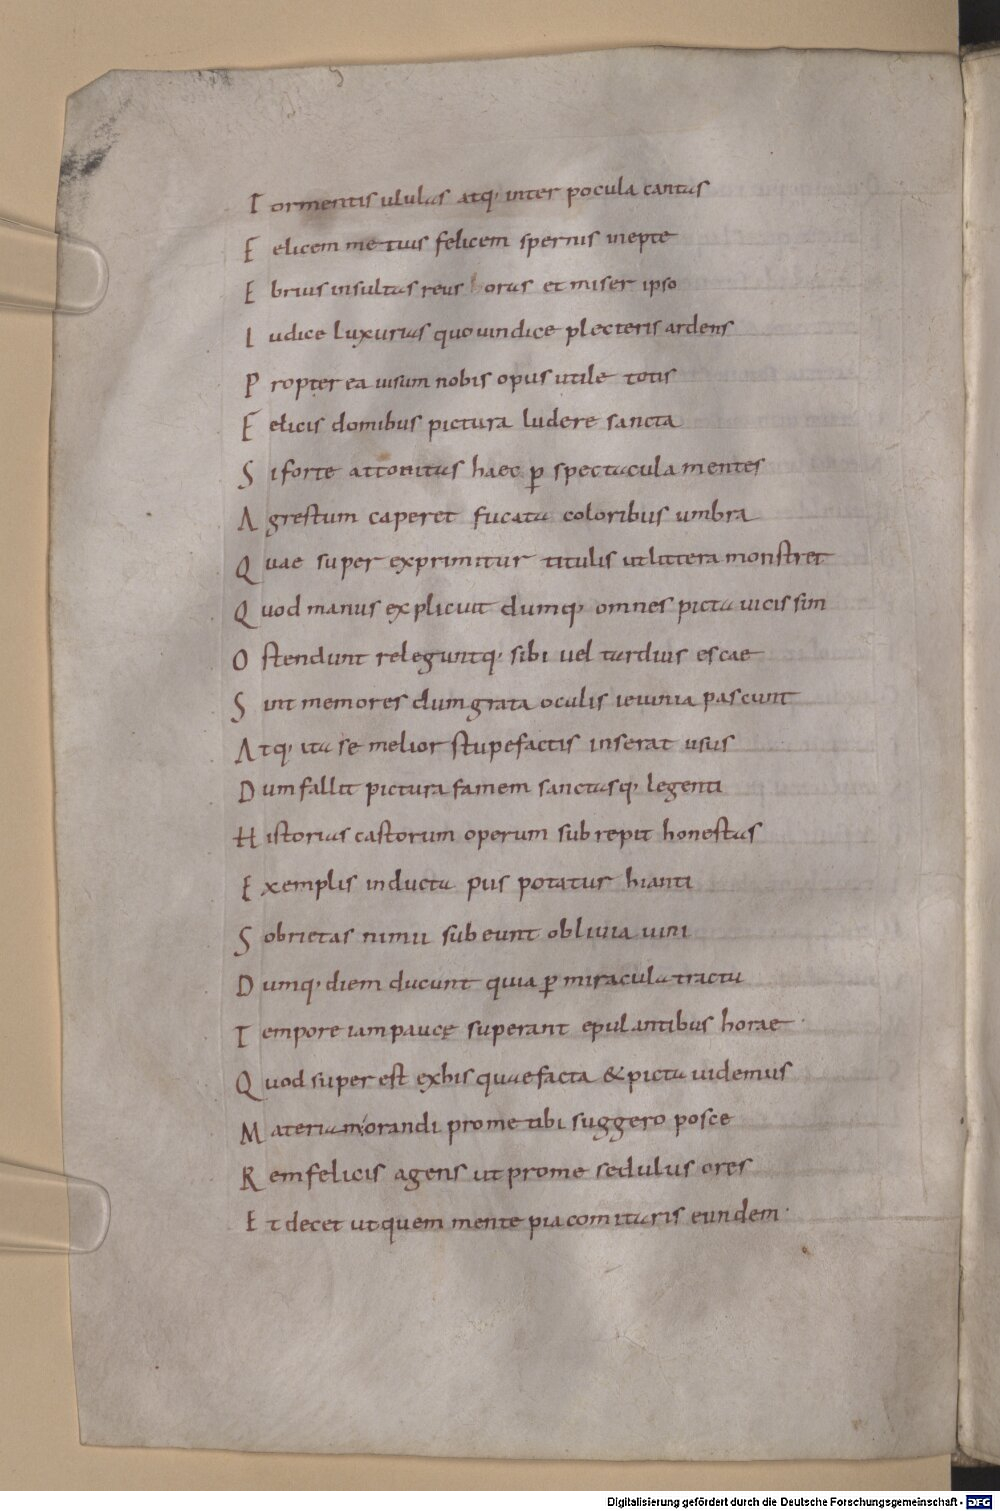 T ormentis ululas atq; inter pocula cantas
F elicem metuis felicem spernis inepte
E brius insultas reus horas et miser ipso
I udice luxurias quo uindice plecteris ardens
P ropter ea uisum nobis opus utile totis
F elicis domibus pictura ludere sancta
S i forte attonitas haec ꝑ spectacula mentes
A grestum caperet fucata coloribus umbra
Q uae super exprimitur titulis ut littera monstret
Q uod manus explicuit dumq; omnes picta uicissim
O stendunt releguntq; sibi uel tardius escae
S int memores dum grata oculis ieiunia pascunt
A tq; ita se melior stupefactis inserat usus
D um fallit pictura famem sanctasq; legenti
H istorias castorum operum subrepit honestas
E xemplis inducta piis potatur hianti
S obrietas nimii subeunt obliuia uini
D umq; diem ducunt quia ꝑ miracula tractu
T empore iam paucę superant epulantibus horae
Q uod super est exhis quae facta & picta uidemus
M ateriam orandi prome tibi suggero posce
R em felicis agens ut prome sedulus ores
E t decet ut quem mente pia comitaris eundem
Digitalisierung gefördert durch die Deutsche Forschungsgemeinschaft - DFG